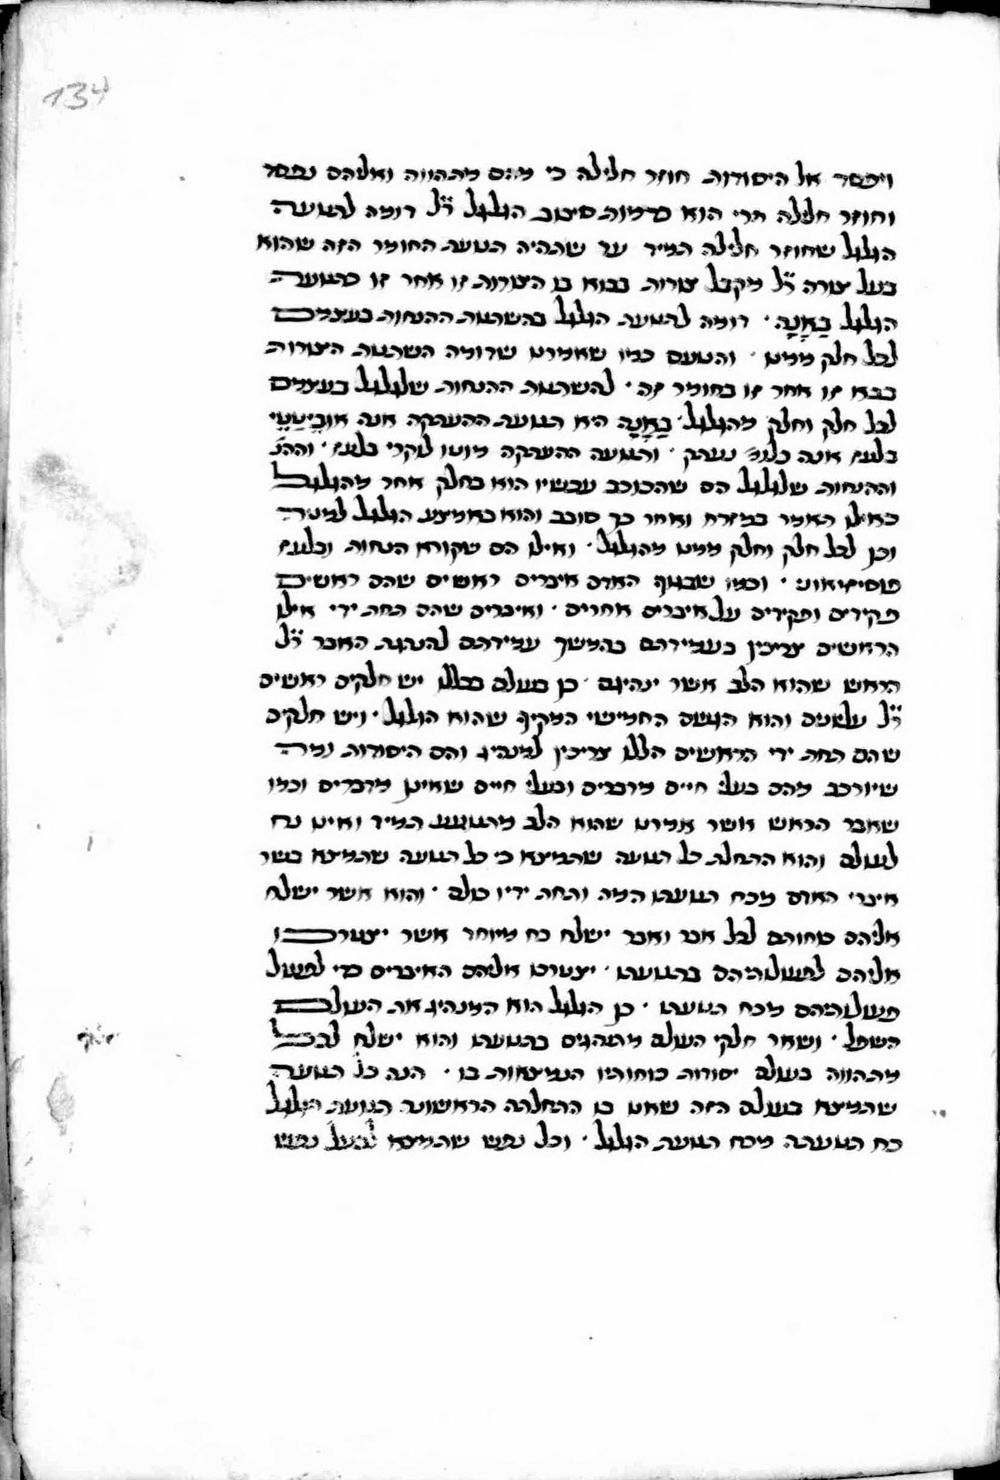 134
ויפסד אל היסודות חוזר חלילה כי מהם מתהווה ואליהם נפסד
וחוזר חלילה הרי הוא כדמות סיבוב הגלגל ר״ל דומה לתנועה
הגלגל שחוזר חלילה תמיד עד שתהיה תנועת החומר הזה שהוא
בעל צורה ר״ל מקבל צורות בבוא בו הצורות זו אחר זו כתנועת
הגלגל בָאָנָה · דומה לתנועת הגלגל בהשתנות ההנחות בעצמם
לכל חלק ממנו · והטעם כמו שאמרנו שדומה השתנות הצורות
בבא זו אחר זו בחומר זה · להשתנות ההנחות שלגלגל בעצמם
לכל חלק וחלק מהגלגל · בָאָנָה היא תנועת ההעתקה אנה
בלעז אנה כלומ׳ נעתק · ותנועה ההעתקה בלעז ·
וההנחות שלגלגל הם שהכוכב עכשיו הוא בחלק אחד מהגלגל
כאילו תאמר במזרח ואחר כך סובב והוא באמצע הגלגל
וכן לכל חלק וחלק ממנו מהגלגל · ואילו הם שקורא הנחות ובלעז
· וכמו שבגוף האדם איברים ראשים שהם ראשים
פקידים ופקידים על איברים אחרים · ואיברים שהם תחת ידי אילו
הראשים צריכין בעמידתם בהמשך עמידתם להנהגת האבר ר״ל
הראש שהוא הלב אשר ינהיגם · כן בעולם בכללו יש חלקים ראשים
ר״ל והוא הגשם החמישי המקיף שהוא הגלגל · ויש חלקים
שהם תחת ידי הראשים הללו צריכין למנהיג והם היסודות ומה
שיורכב מהם בעלי חיים מדברים ובעלי חיים שאינן מדברים וכמו
שאבר הראש אשר אמרנו שהוא הלב מתנועע תמיד ואינו נח
לעולם והוא התחלת כל תנועה שתמצא כי כל תנועה שתמצא בשר
איברי האדם מכח תנועתו המה ותחת ידיו כולם · והוא אשר ישלח
אליהם כחותם לכל אבר ואבר ישלח כח מיוחד אשר יצטרכו
אליהם לפעולותיהם בתנועתו · יצטרכו אליהם האיברים כדי לפעול
פעולותיהם מכח תנועתו · כן הגלגל הוא המנהיג את העולם
השפל · ושאר חלקי העולם מתנהגים בתנועתו והוא ישלח לכל
מתהווה בעולם יסודות כוחותיו הנמצאות בו · הנה כל תנועה
שתמצא בעולם הזה שאנו בו התחלתה הראשונה תנועת הגלגל
כח תנועתה מכח תנועת הגלגל · וכל נפש שתמצא לבעל נפש